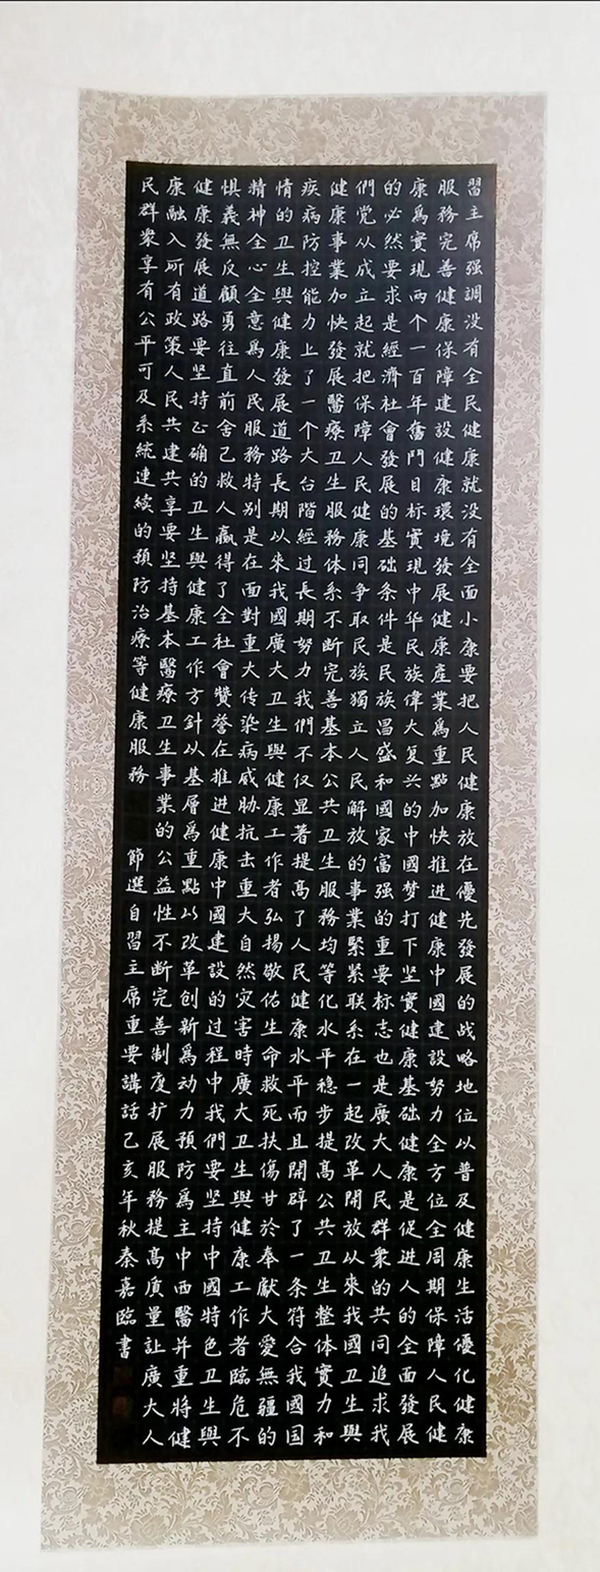 習主席强調没有全民健康就没有全面小康要把人民健康放在優先發展的战略地位以普及健康生活優化健康
服務完善健康保障建設健康環境發展健康產業爲重點加快推進健康中國建設努力全方位全周期保障人民健
康爲實現两个一百年奮鬥目标實現中华民族偉大复兴的中國梦打下坚實健康基础健康是促進人的全面發展
的必然要求是經濟社會發展的基础条件是民族昌盛和國家富强的重要标志也是廣大人民群衆的共同追求我
們党从成立起就把保障人民健康同争取民族獨立人民解放的事業緊紧联系在一起改革開放以來我國卫生與
健康事業加快發展醫療卫生服務体系不断完善基本公共卫生服務均等化水平稳步提高公共卫生整体實力和
疾病防控能力上了一个大台階經过長期努力我們不仅显著提高了人民健康水平而且開辟了一条符合我國国
情的卫生與健康發展道路長期以來我國廣大卫生與健康工作者弘揚敬佑生命救死扶傷甘於奉獻大愛無疆的
精神全心全意爲人民服務特别是在面對重大传染病威胁抗击重大自然灾害時廣大卫生與健康工作者臨危不
惧義無反顧勇往直前舍己救人贏得了全社會赞誉在推進健康中國建設的过程中我們要坚持中國特色卫生與
健康發展道路要坚持正确的卫生與健康工作方針以基層爲重點以改革创新爲动力預防爲主中西醫并重将健
康融入所有政策人民共建共享要坚持基本醫療卫生事業的公益性不断完善制度扩展服務提高质量让廣大人
民群衆享有公平可及系統連续的預防治療等健康服務 節選自習主席重要講話己亥年秋秦嘉臨書